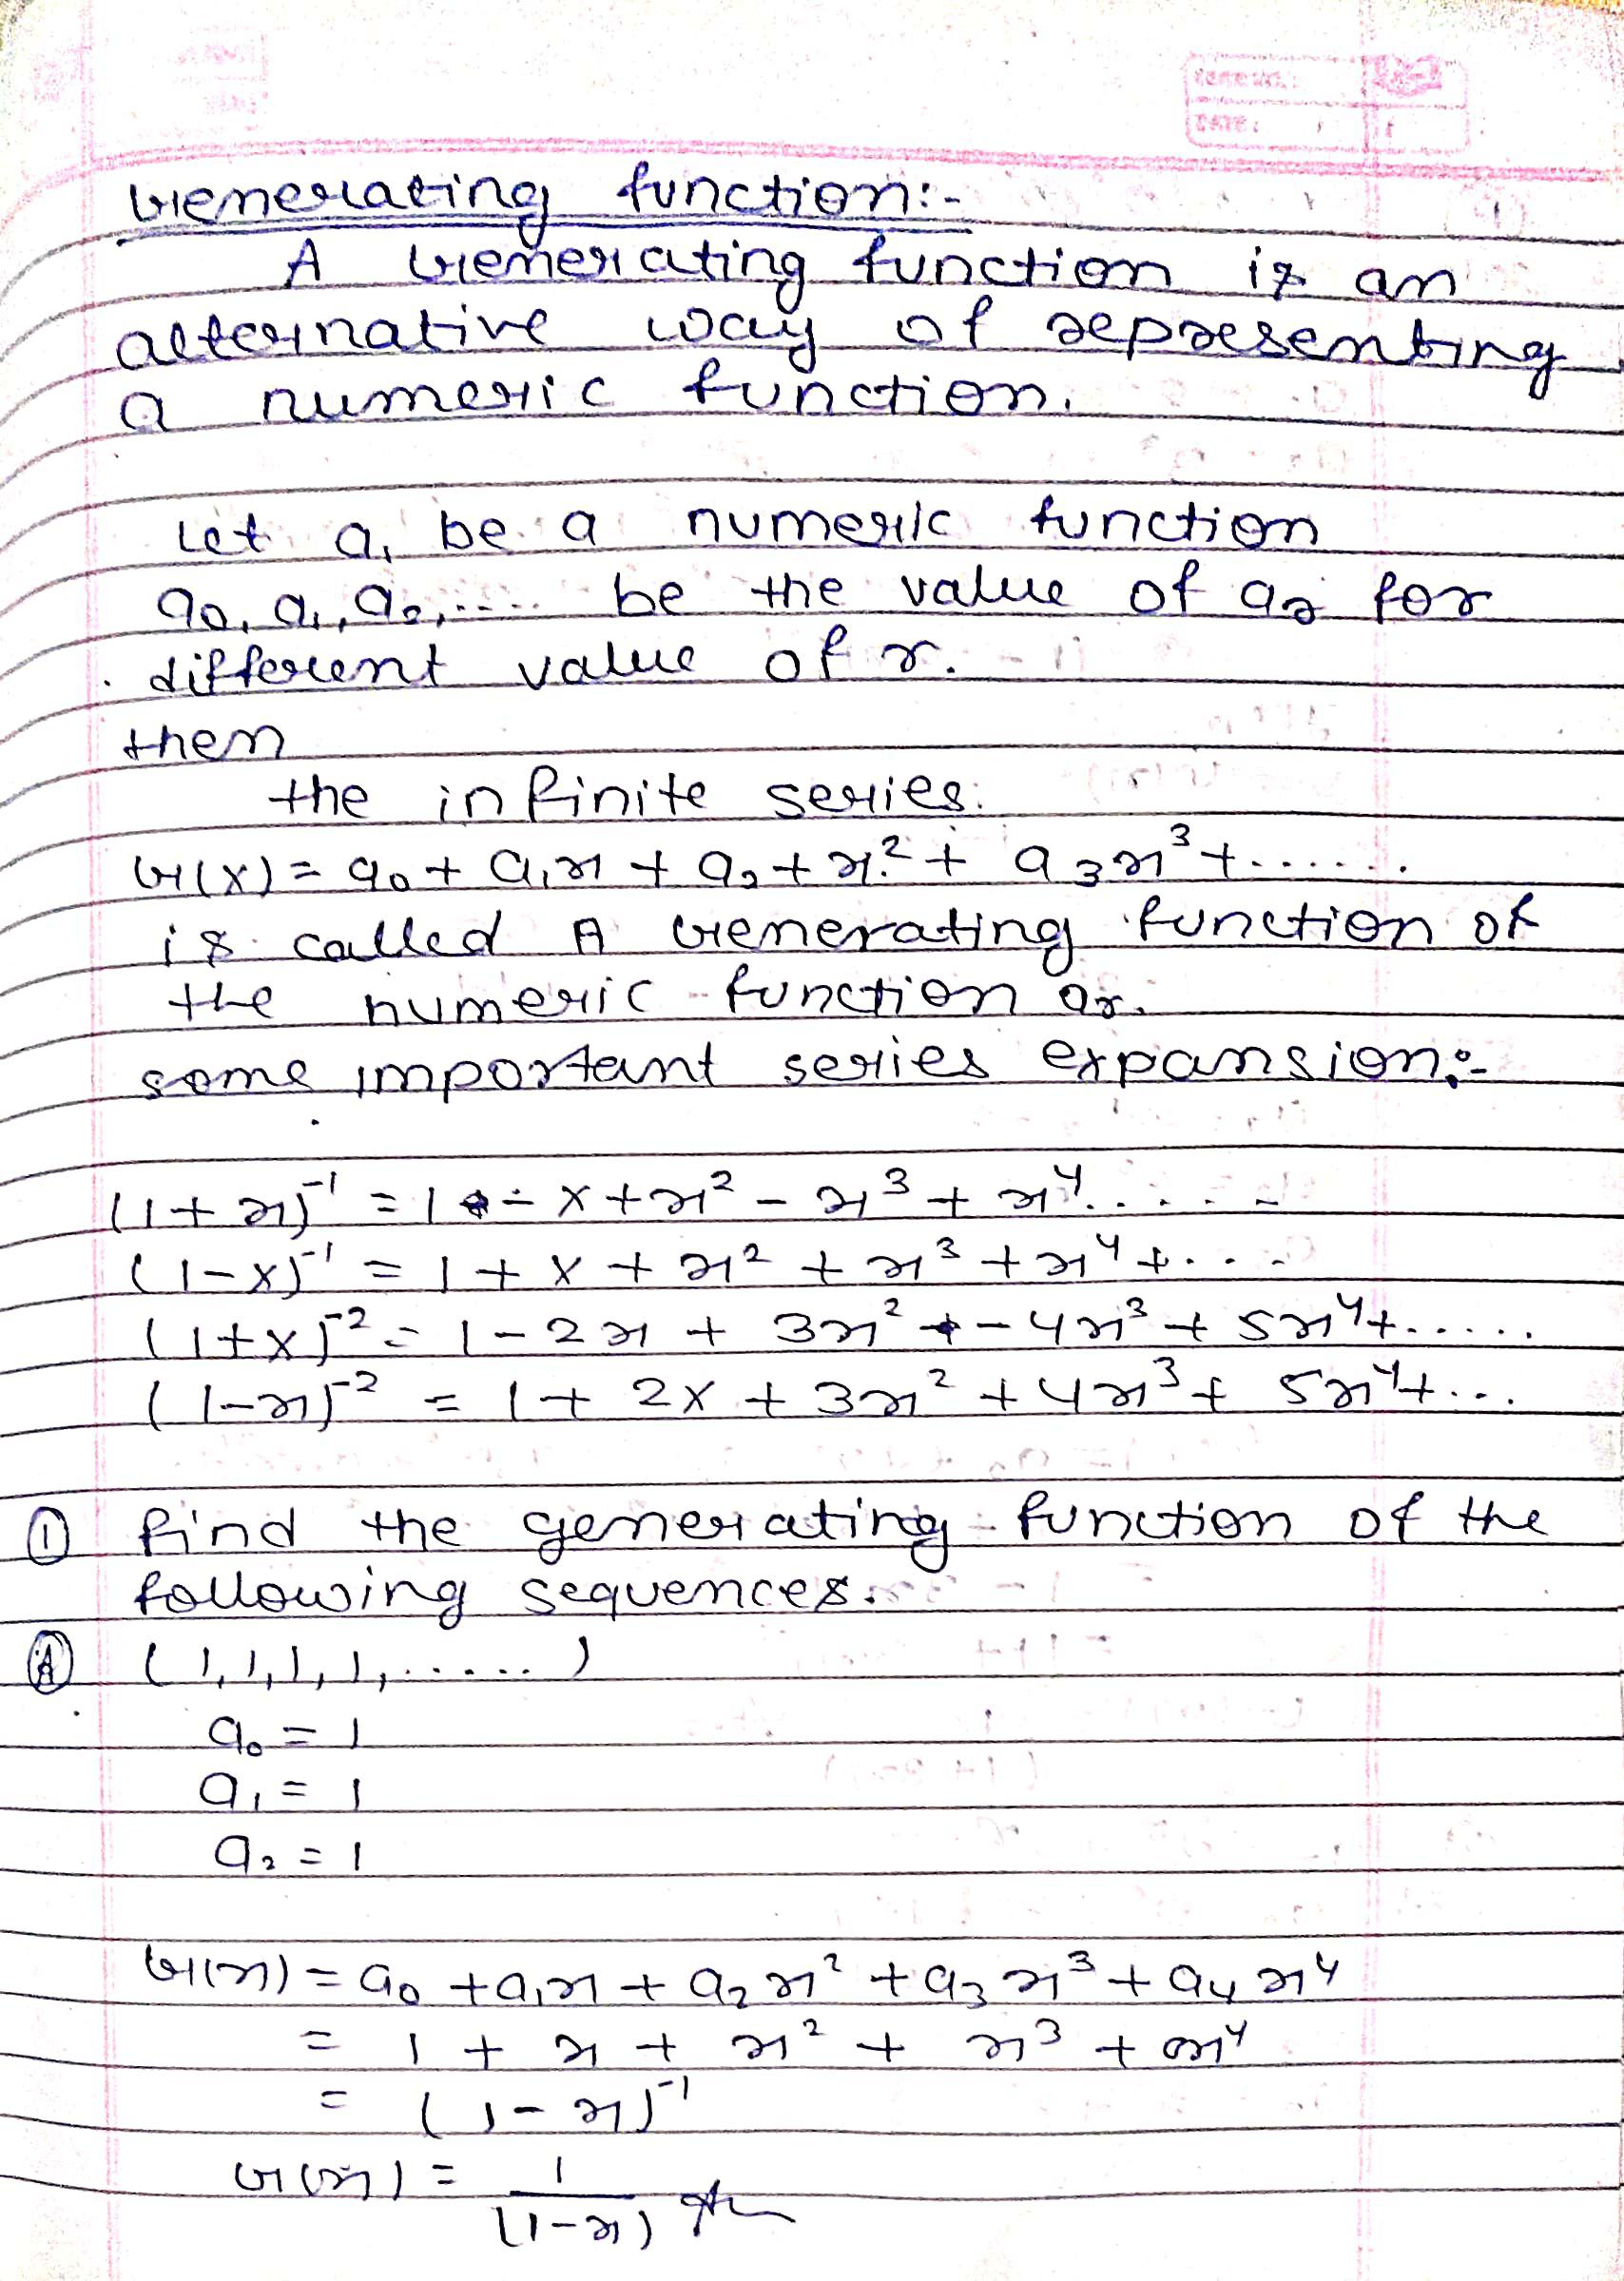 PAGE NO.:
DATE:
Generating function:-
A Generating function is an
alternative way of representing
a numeric function.
Let a, be a numeric function
a₀, a₁, a₂, ..... be the value of aᵣ for
different value of r.
then
the infinite series.
G(x) = a₀ + a₁x + a₂ + x² + a₃x³ + ......
is called A Generating function of
the numeric function aᵣ.
some important series expansion:-
(1+x)⁻¹ = 1 - x + x² - x³ + x⁴ .....
(1-x)⁻¹ = 1 + x + x² + x³ + x⁴ + ....
(1+x)⁻² = 1 - 2x + 3x² - 4x³ + 5x⁴ + .....
(1-x)⁻² = 1 + 2x + 3x² + 4x³ + 5x⁴ + ...
① find the generating function of the
following sequences.
Ⓐ (1,1,1,1, ...... )
a₀ = 1
a₁ = 1
a₂ = 1
G(x) = a₀ + a₁x + a₂x² + a₃x³ + a₄x⁴
= 1 + x + x² + x³ + x⁴
= (1-x)⁻¹
G(x) = 1/(1-x)